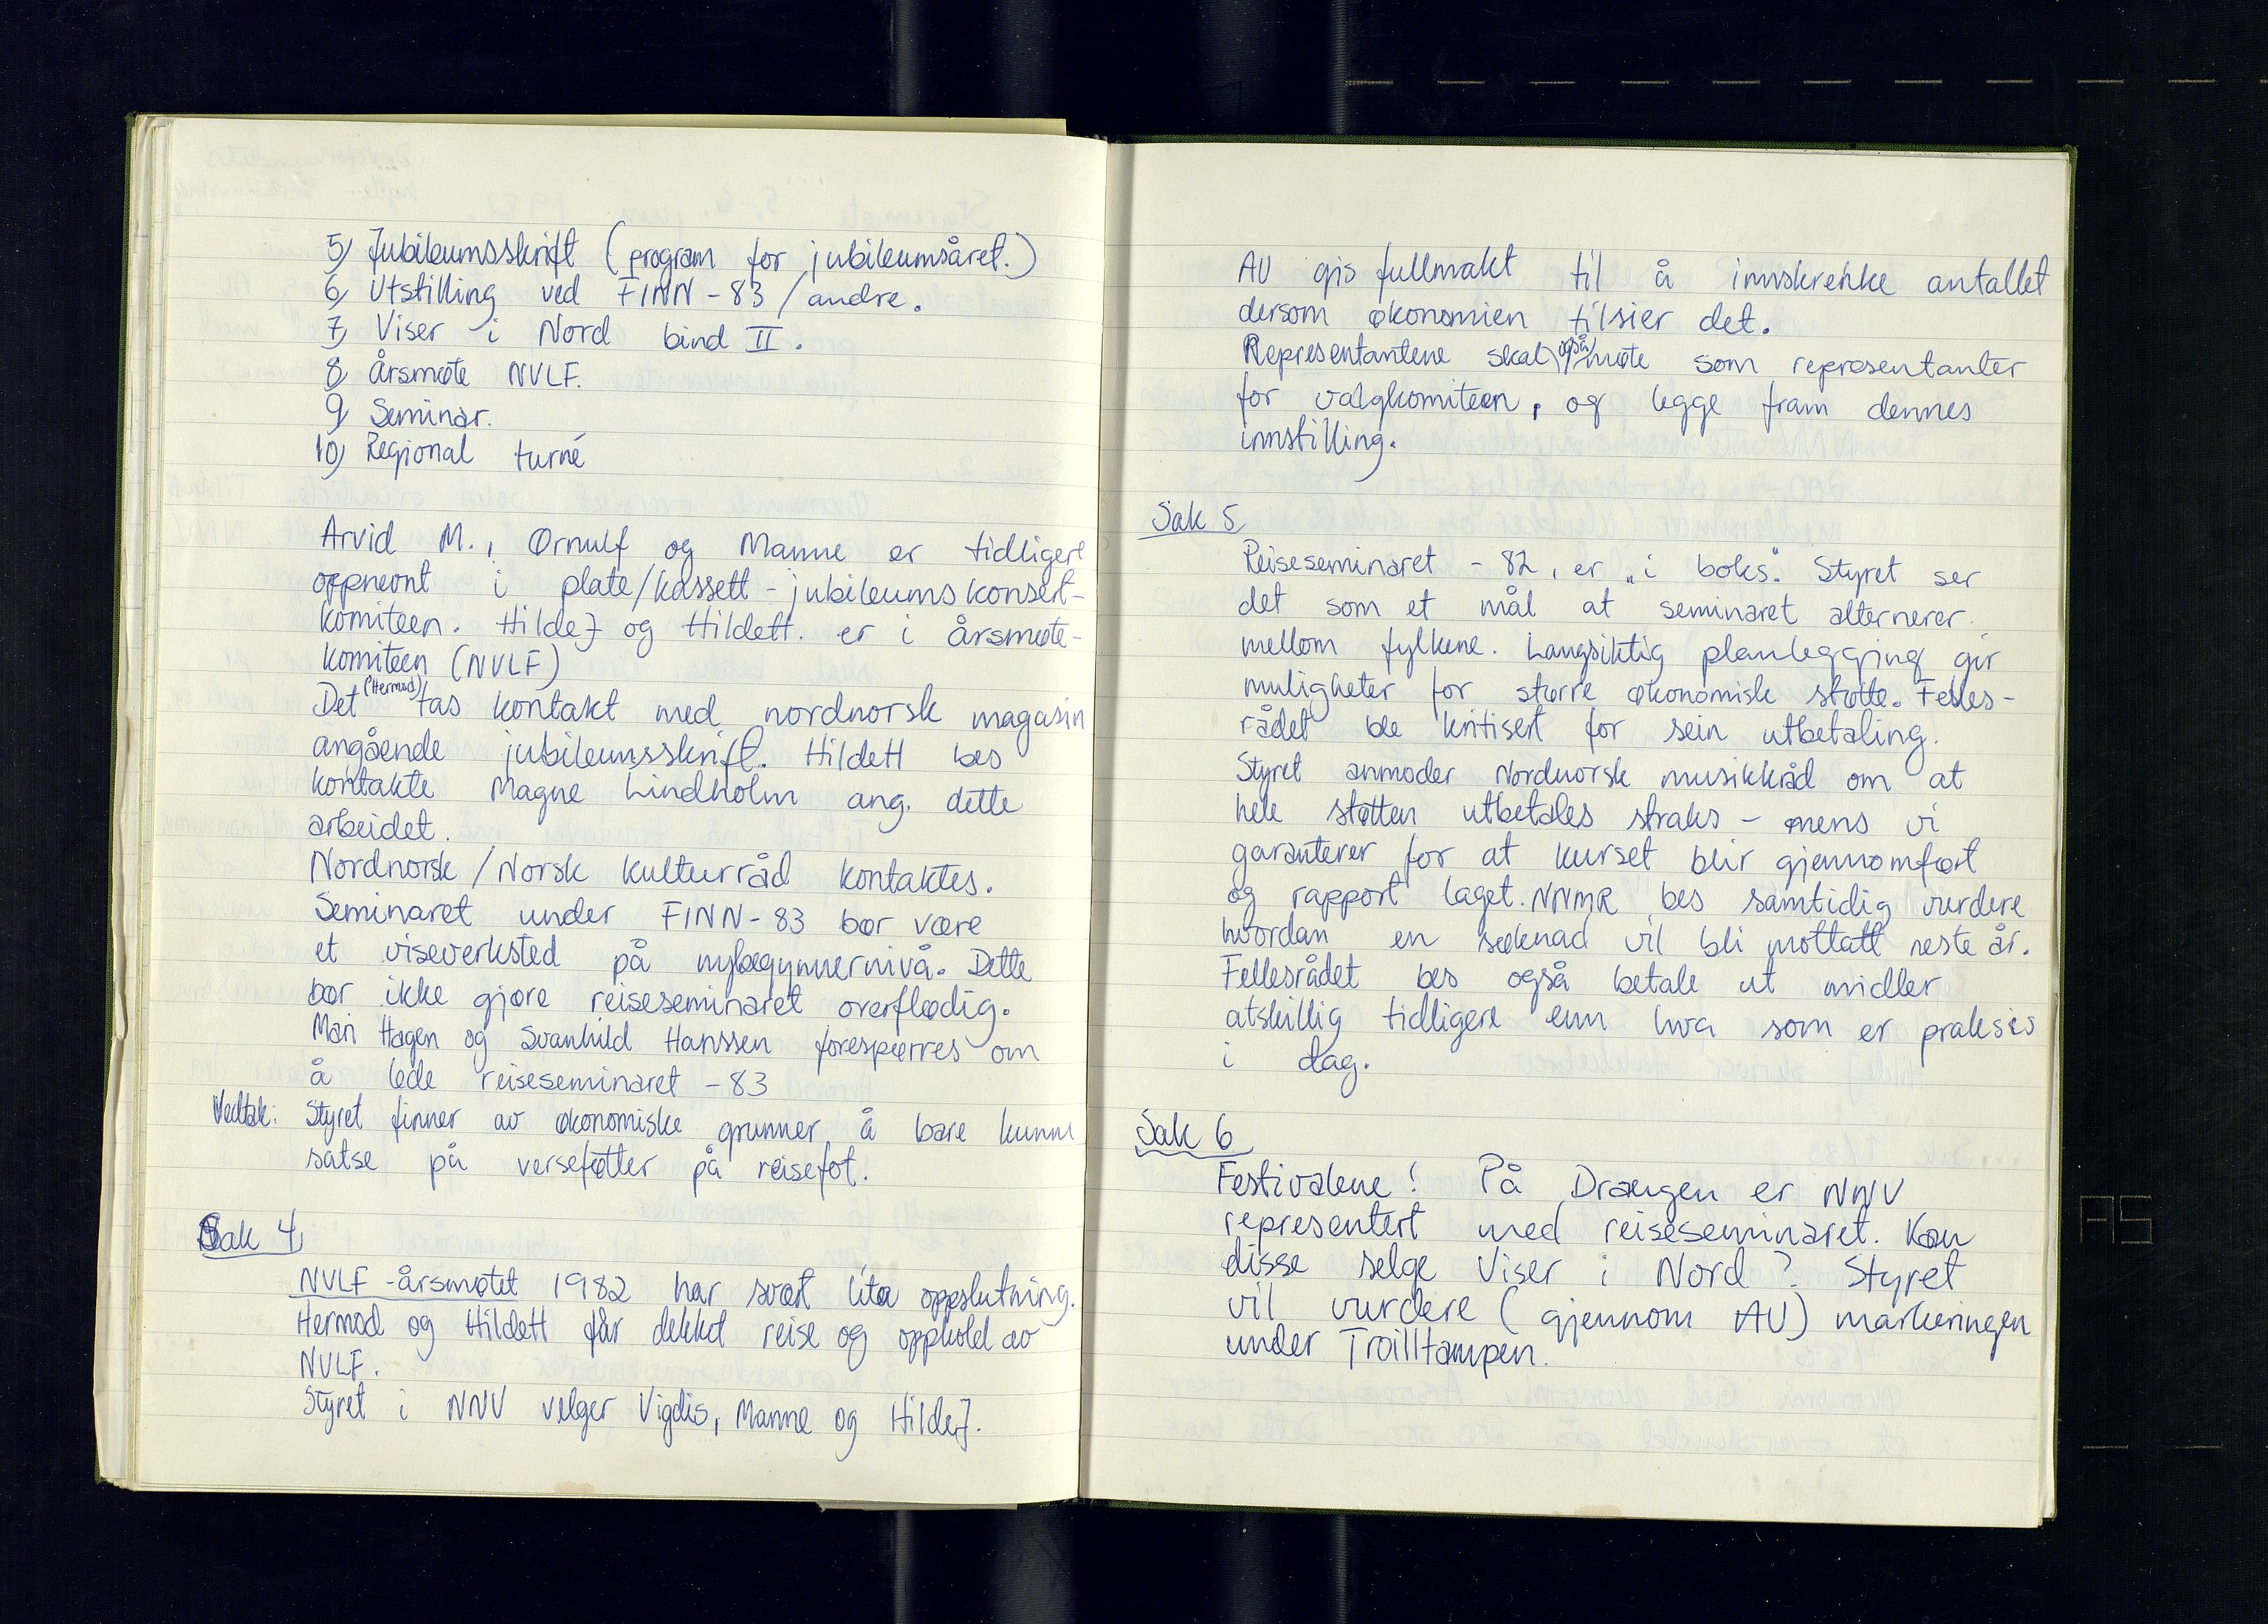 5) Jubileumsskrift (program for jubileumsåret.)
6) Utstilling ved FINN - 83 / andre.
7) Viser i Nord bind II.
8) Årsmøte NVLF.
9) Seminar.
10) Regional turné
Arvid M., Ørnulf og Manne er tidligere
oppnevnt i plate/kassett - jubileumskonsert-
komiteen. HildeJ og HildeH. er i årsmøte-
komiteen (NVLF)
Det (Hermod) tas kontakt med nordnorsk magasin
angående jubileumsskrift. HildeH bes
kontakte Magne Lindholm ang. dette
arbeidet.
Nordnorsk / Norsk kulturråd kontaktes.
Seminaret under FINN - 83 bør være
et viseverksted på nybegynnernivå. Dette
bør ikke gjøre reiseseminaret overflødig.
Mari Hagen og Svanhild Hanssen forespørres om
å lede reiseseminaret - 83
Vedtak: Styret finner av økonomiske grunner å bare kunne
satse på verseføtter på reisefot.
Sak 4
NVLF - årsmøtet 1982 har svært lita oppslutning.
Hermod og HildeH får dekkd reise og opphold av
NVLF.
Styret i NNV velger Vigdis, Manne og HildeJ.
AU gis fullmakt til å innskrenke antallet
dersom økonomien tilsier det.
Representantene skal også møte som representanter
for valgkomiteen, og legge fram dennes
innstilling.
Sak 5
Reiseseminaret - 82, er „i boks". Styret ser
det som et mål at seminaret alternerer
mellom fylkene. Langsiktig planlegging gir
muligheter for større økonomisk støtte. Felles-
rådet ble kritisert for sein utbetaling.
Styret anmoder Nordnorsk musikkråd om at
hele støtten utbetales straks - mens vi
garanterer for at kurset blir gjennomført
og rapport laget. NNMR bes samtidig vurdere
hvordan en søknad vil bli mottatt neste år.
Fellesrådet bes også betale ut midler
atskillig tidligere enn hva som er praksis
i dag.
Sak 6
Festivalene! På Draugen er NNV
representert med reiseseminaret. Kan
disse selge Viser i Nord? Styret
vil vurdere (gjennom AU) markeringen
under Trolltampen.